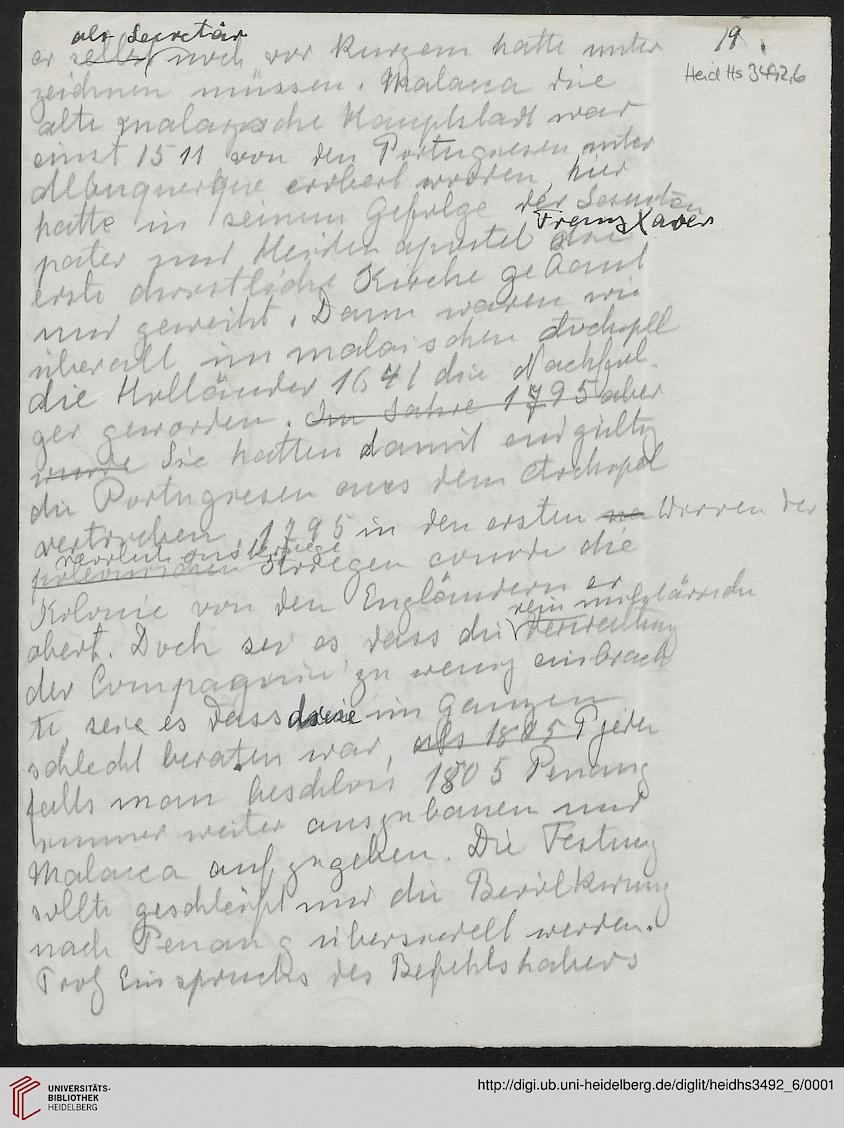 19.
Heid Hs 3492,6
als Secretär
er selbst noch vor kurzem hatte unter
zeichnen müssen. Malacca die
alte malayische Hauptstadt war
einst 1511 von den Portugiesen unter
Albuquerque erobert worden, hier
hatte in seinem Gefolge der Jesuiten
pater und Heidenapostel Franz Xaver die
erste christliche Kirche gebaut
und geweiht. Dann waren wie
überall im malaischen Archipell
die Holländer 1641 die Nachfol
ger geworden. Im Jahre 1795 aber
wurde Sie hatten damit endgültig
die Portugiesen aus dem Archipel
vertrieben. 1795 in den ersten na Wirren der
revolutionskriege
poleonischen Kriegen wurde die
Kolonie von den Engländern er
obert. Doch sei es dass die rein militärische Verwaltung
der Compagnie zu wenig einbrach
te, seie es dass diese im Ganzen
schlecht beraten war, als 1805 P jeden
falls man beschloss 1805 Penang
immer weiter auszubauen und
Malacca aufzugeben. Die Festung
sollte geschleift und die Bevölkerung
nach Penang übersiedelt werden.
Trotz Einspruchs des Befehlshabers
UNIVERSITÄTS-
BIBLIOTHEK
HEIDELBERG
http://digi.ub.uni-heidelberg.de/diglit/heidhs3492_6/0001